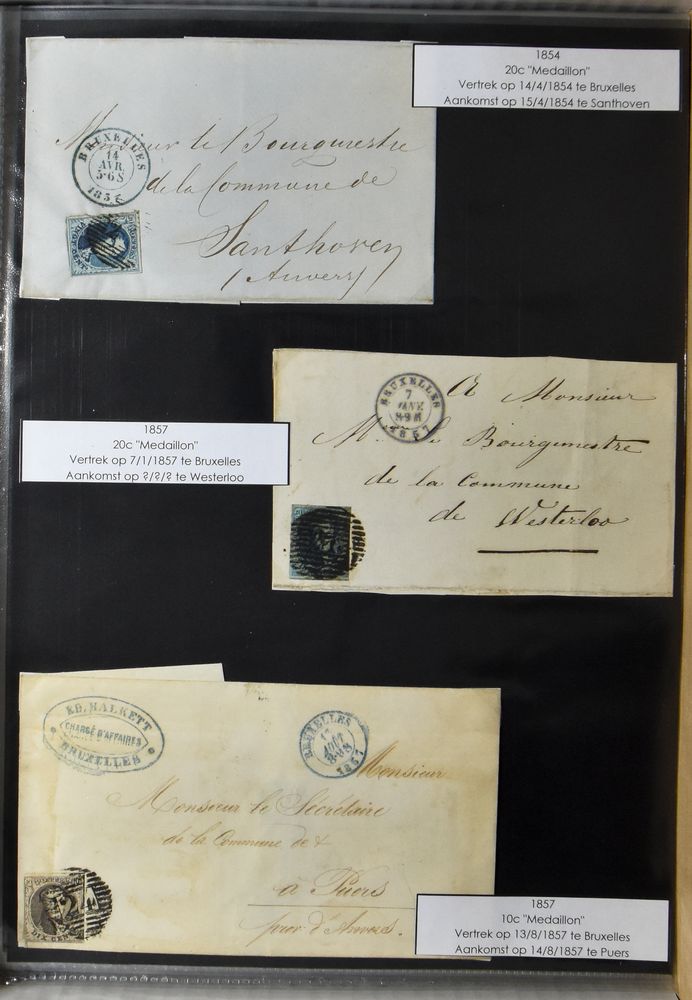 1854
20c "Medaillon"
Vertrek op 14/4/1854 te Bruxelles
Aankomst op 15/4/1854 te Santhoven
BRUXELLES
14
AVR.
5-6S
Monsieur le Bourgmestre
de la Commune de
Santhoven
(Anvers)
BRUXELLES
7
JANV
1857
A Monsieur
le Bourgmestre
de la Commune
de Westerloo
1857
20c "Medaillon"
Vertrek op 7/1/1857 te Bruxelles
Aankomst op ?/?/? te Westerloo
ED. HALKETT
CHARGÉ D'AFFAIRES
BRUXELLES
BRUXELLES
AOUT
1857
Monsieur
Monsieur le Secrétaire
de la Commune de
à Puers
prov. d'Anvers.
24
DIX CEN
1857
10c "Medaillon"
Vertrek op 13/8/1857 te Bruxelles
Aankomst op 14/8/1857 te Puers